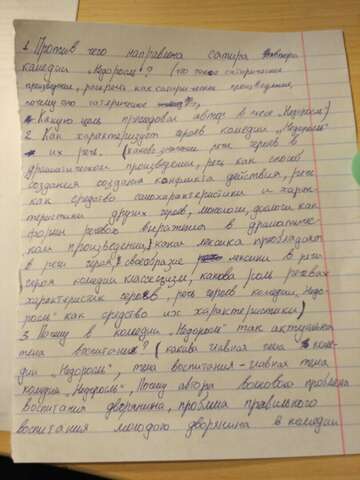 1. Против чего направлена сатира автора
комедии „Недоросль"? (что такое сатирическое
произведение, раскрыта как сатирическое произведение,
почему это сатирическое
какую цель преследовал автор в пьесе „Недоросль)
2. Как характеризует героев комедии „Недоросль"
их речь. (каково значение речи героев в
драматическом произведении, речь как способ
создания создания конфликта действия, речь
как средство самохарактеристики и харак-
теристики других героев, монологи, диалоги как
форма речевого выражения в драматиче-
ском произведении, какая лексика преобладает
в речи героя, своеобразие лексики в речи
героя комедии классицизм, какова роль речевых
характеристик героев, речь героев комедии „Недо-
росль" как средство их характеристики)
3. Почему в комедии „Недоросль" так актуальна
тема воспитания? (какова главная тема коме-
дии „Недоросль", тема воспитания - главная тема
комедии „Недоросль", Почему автора волновала проблема
воспитания дворянина, проблема правильного
воспитания молодого дворянина в комедии